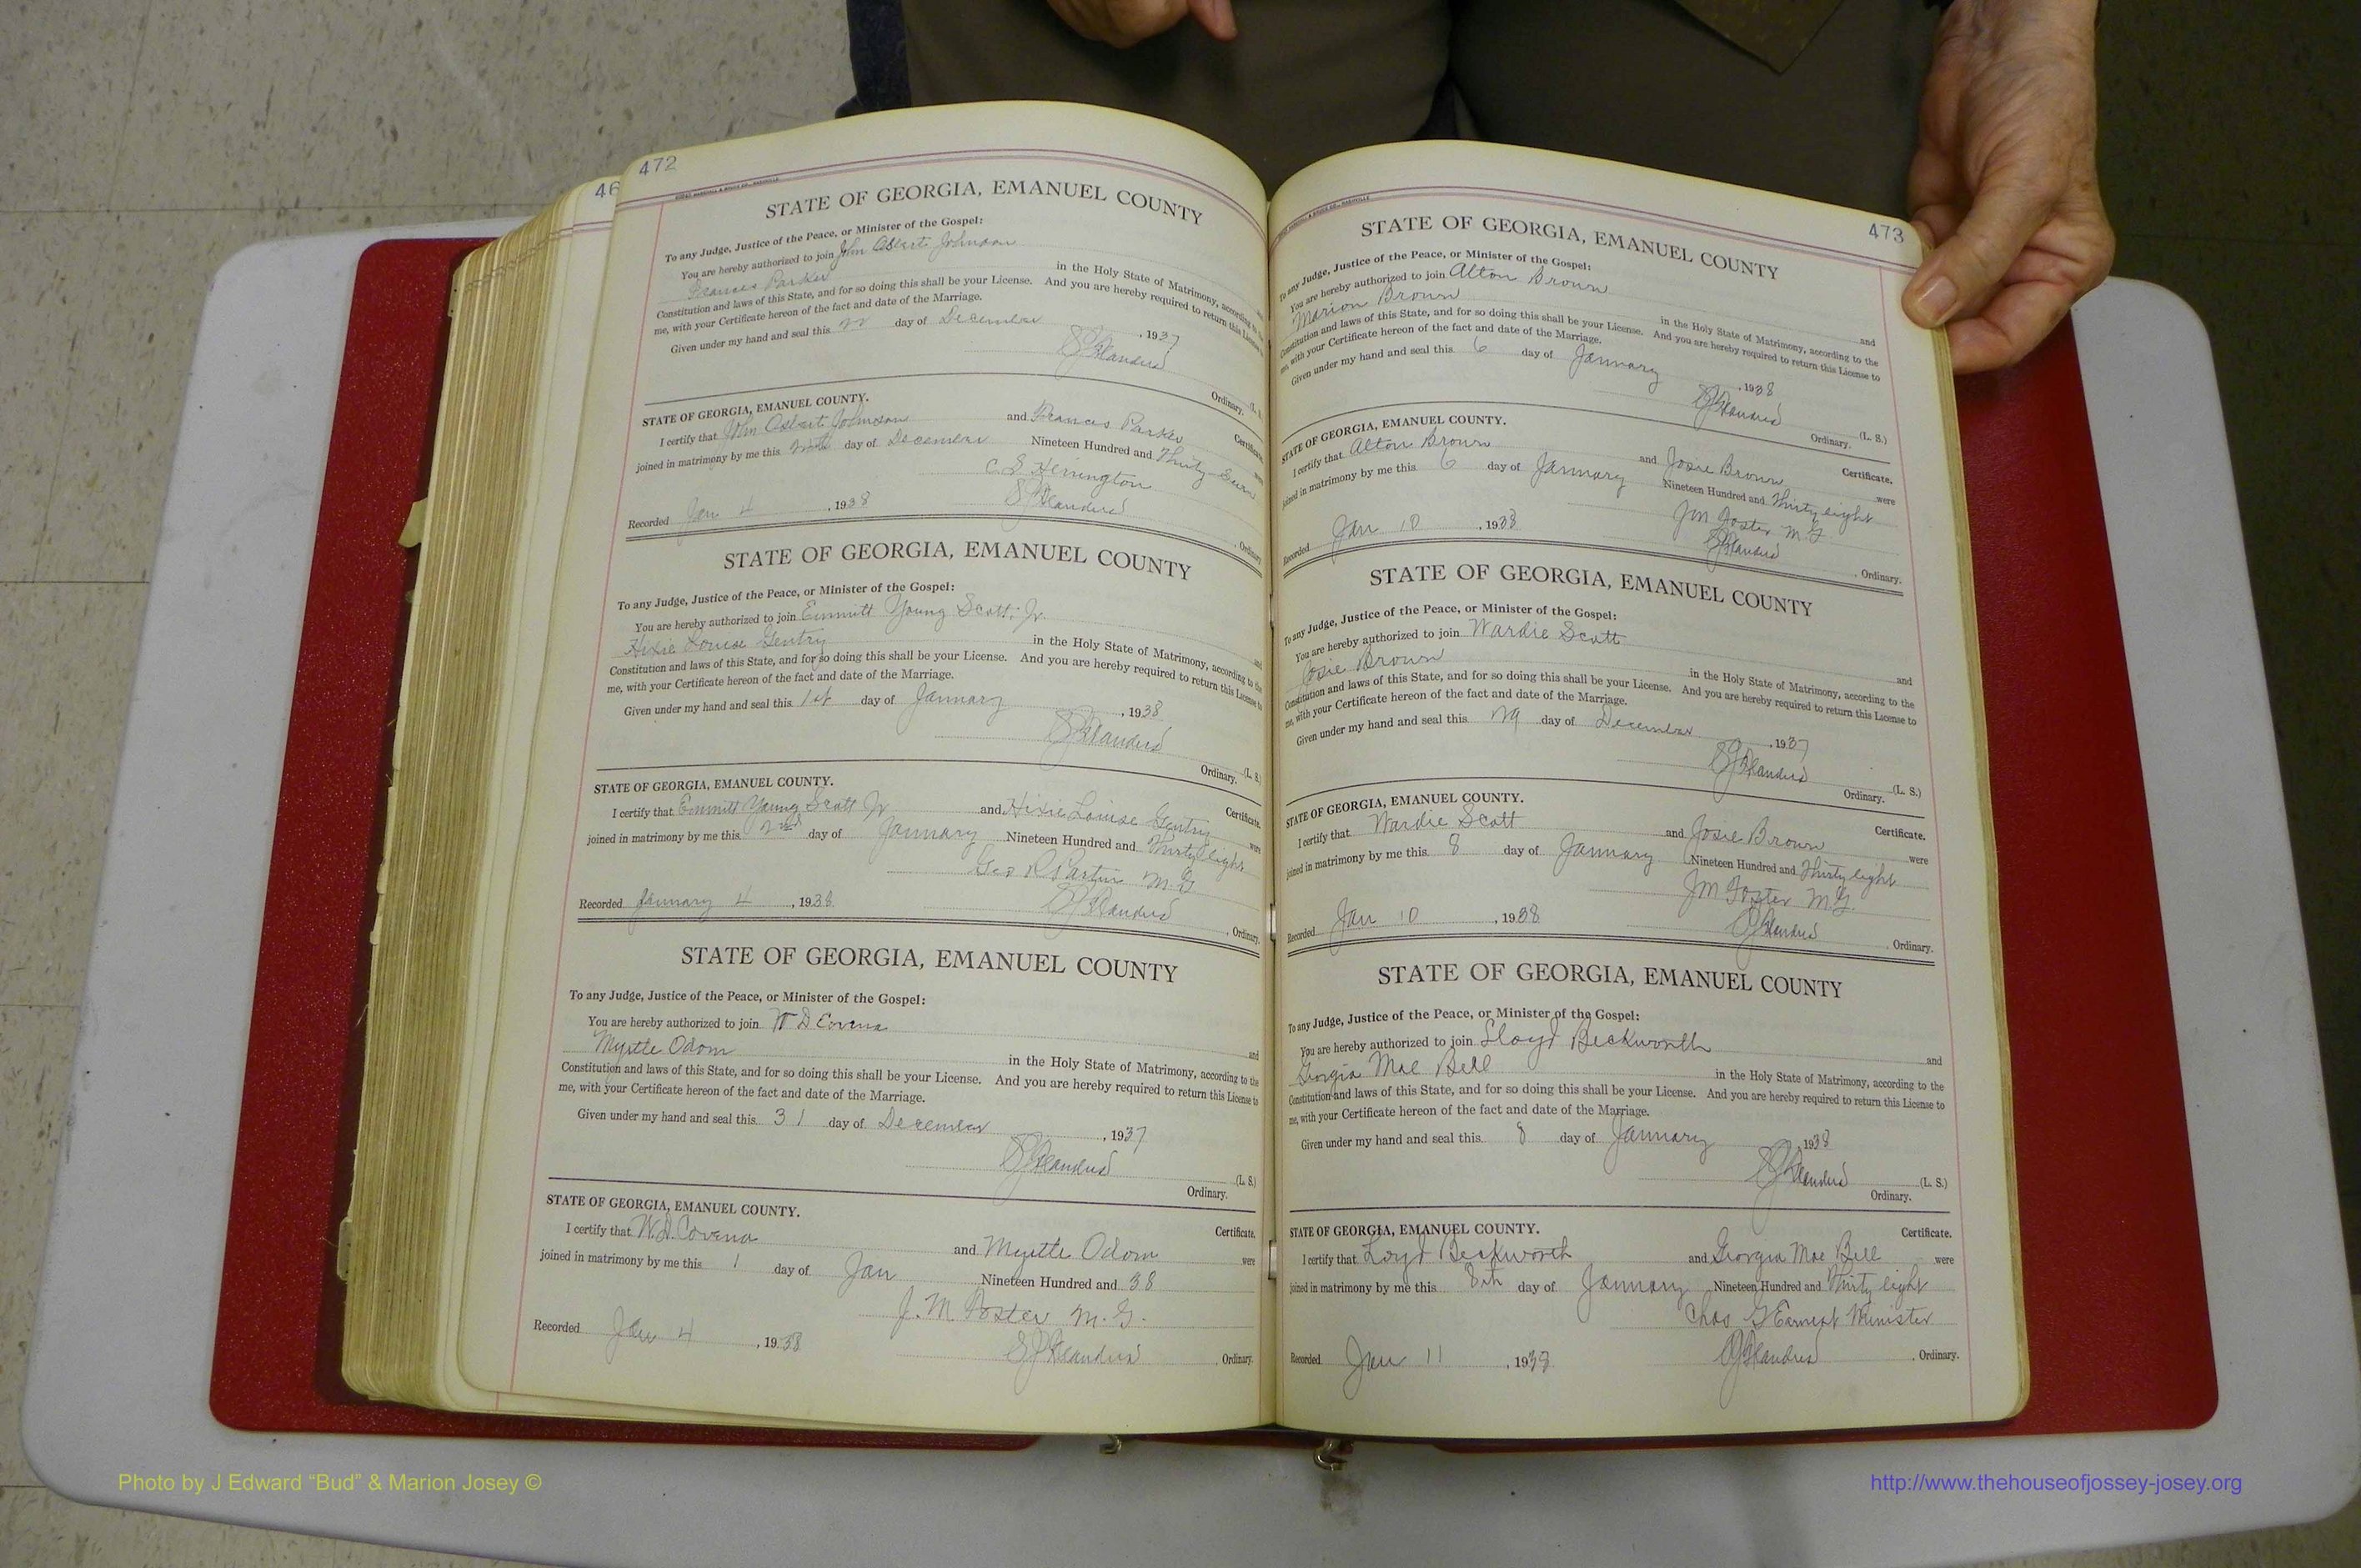 46
472
STATE OF GEORGIA, EMANUEL COUNTY
To any Judge, Justice of the Peace, or Minister of the Gospel:
You are hereby authorized to join Johnson
Frances Parker in the Holy State of Matrimony, according to
Constitution and laws of this State, and for so doing this shall be your License. And you are hereby required to return this License
me, with your Certificate hereon of the fact and date of the Marriage.
Given under my hand and seal this 22 day of December, 1937
Ordinary. (L. S.
STATE OF GEORGIA, EMANUEL COUNTY.
Certificate.
I certify that Johnson and Frances Parker were
joined in matrimony by me this day of December Nineteen Hundred and Thirty-
C S Herrington
Recorded Jan 4, 1938
Ordinary
STATE OF GEORGIA, EMANUEL COUNTY
To any Judge, Justice of the Peace, or Minister of the Gospel:
You are hereby authorized to join Emmitt Young Scott, Jr. and
Hixie Louise Gentry in the Holy State of Matrimony, according to the
Constitution and laws of this State, and for so doing this shall be your License. And you are hereby required to return this License to
me, with your Certificate hereon of the fact and date of the Marriage.
Given under my hand and seal this 1st day of January, 1938
Ordinary. (L. S.)
STATE OF GEORGIA, EMANUEL COUNTY.
Certificate.
I certify that Emmitt Young Scott Jr and Hixie Louise Gentry were
joined in matrimony by me this 2nd day of January Nineteen Hundred and Thirty eight
Geo R Partin M. G
Recorded January 4, 1938
Ordinary.
STATE OF GEORGIA, EMANUEL COUNTY
To any Judge, Justice of the Peace, or Minister of the Gospel:
You are hereby authorized to join W D Covena and
Myrtle Odom in the Holy State of Matrimony, according to the
Constitution and laws of this State, and for so doing this shall be your License. And you are hereby required to return this License to
me, with your Certificate hereon of the fact and date of the Marriage.
Given under my hand and seal this 31 day of December, 1937
(L. S.)
Ordinary.
STATE OF GEORGIA, EMANUEL COUNTY.
Certificate.
I certify that W. D. Covena and Myrtle Odom were
joined in matrimony by me this 1 day of Jan Nineteen Hundred and 38
J. M Foster M. G.
Recorded Jan 4, 1938
Ordinary.
473
STATE OF GEORGIA, EMANUEL COUNTY
To any Judge, Justice of the Peace, or Minister of the Gospel:
You are hereby authorized to join Alton Brown and
Marion Brown in the Holy State of Matrimony, according to the
Constitution and laws of this State, and for so doing this shall be your License. And you are hereby required to return this License to
me, with your Certificate hereon of the fact and date of the Marriage.
Given under my hand and seal this 6 day of January, 1938
Ordinary. (L. S.)
STATE OF GEORGIA, EMANUEL COUNTY.
Certificate.
I certify that Alton Brown and Josie Brown were
joined in matrimony by me this 6 day of January Nineteen Hundred and Thirty eight
J M Foster M G
Recorded Jan 10, 1938
Ordinary.
STATE OF GEORGIA, EMANUEL COUNTY
To any Judge, Justice of the Peace, or Minister of the Gospel:
You are hereby authorized to join Wardie Scott and
Josie Brown in the Holy State of Matrimony, according to the
Constitution and laws of this State, and for so doing this shall be your License. And you are hereby required to return this License to
me, with your Certificate hereon of the fact and date of the Marriage.
Given under my hand and seal this 29 day of December, 1937
Ordinary. (L. S.)
STATE OF GEORGIA, EMANUEL COUNTY.
Certificate.
I certify that Wardie Scott and Josie Brown were
joined in matrimony by me this 8 day of January Nineteen Hundred and Thirty eight
J M Foster M. G.
Recorded Jan 10, 1938
Ordinary.
STATE OF GEORGIA, EMANUEL COUNTY
To any Judge, Justice of the Peace, or Minister of the Gospel:
You are hereby authorized to join Lloyd Beckworth and
Georgia Mae Bell in the Holy State of Matrimony, according to the
Constitution and laws of this State, and for so doing this shall be your License. And you are hereby required to return this License to
me, with your Certificate hereon of the fact and date of the Marriage.
Given under my hand and seal this 8 day of January 1938
(L. S.)
Ordinary.
STATE OF GEORGIA, EMANUEL COUNTY.
Certificate.
I certify that Loyd Beckworth and Georgia Mae Bell were
joined in matrimony by me this 8th day of January Nineteen Hundred and Thirty eight
Chas G Earnest Minister
Recorded Jan 11, 1938
Ordinary.
Photo by J Edward “Bud” & Marion Josey ©
http://www.thehouseofjossey-josey.org